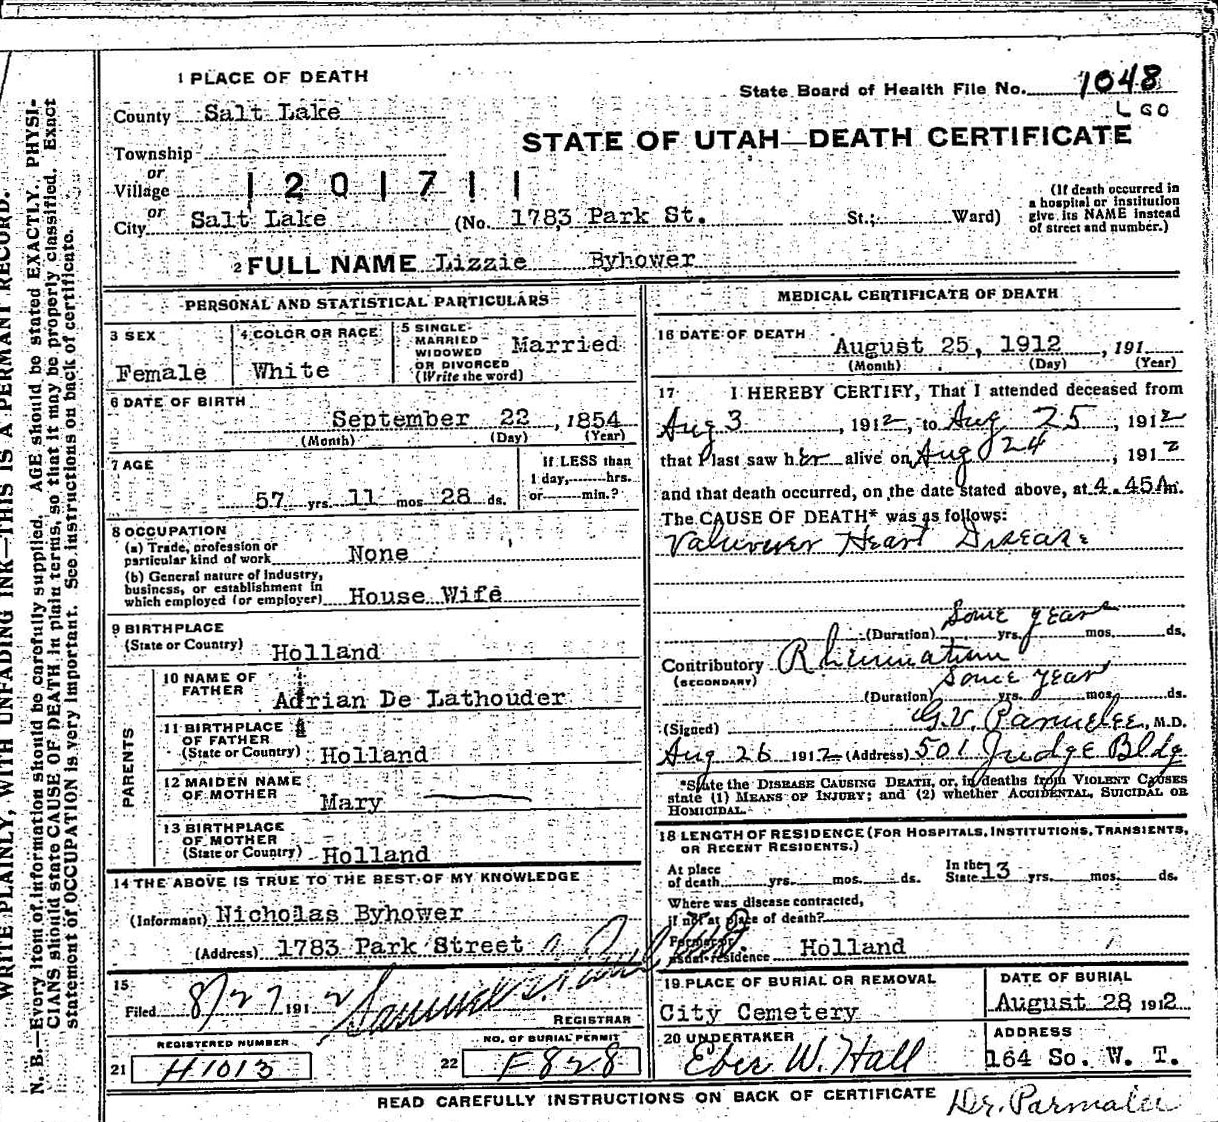 1 PLACE OF DEATH
State Board of Health File No. 1048
County Salt Lake
L GO
STATE OF UTAH—DEATH CERTIFICATE
Township
or
Village
1201711
or
City Salt Lake (No. 1783 Park St. St.; Ward)
(If death occurred in
a hospital or institution
give its NAME instead
of street and number.)
2 FULL NAME Lizzie Byhower
PERSONAL AND STATISTICAL PARTICULARS
3 SEX
Female
4 COLOR OR RACE
White
5 SINGLE
MARRIED
WIDOWED
OR DIVORCED
(Write the word)
Married
6 DATE OF BIRTH
September 22, 1854
(Month) (Day) (Year)
7 AGE
57 yrs. 11 mos. 28 ds.
If LESS than
1 day, hrs.
or min.?
8 OCCUPATION
(a) Trade, profession or
particular kind of work None
(b) General nature of Industry,
business, or establishment in
which employed (or employer) House Wife
9 BIRTHPLACE
(State or Country) Holland
PARENTS
10 NAME OF
FATHER Adrian De Lathouder
11 BIRTHPLACE
OF FATHER
(State or Country) Holland
12 MAIDEN NAME
OF MOTHER Mary
13 BIRTHPLACE
OF MOTHER
(State or Country) Holland
14 THE ABOVE IS TRUE TO THE BEST OF MY KNOWLEDGE
(Informant) Nicholas Byhower
(Address) 1783 Park Street
15
Filed 8/27 1912 Samuel
REGISTRAR
REGISTERED NUMBER
21 H1013
NO. OF BURIAL PERMIT
22 F828
MEDICAL CERTIFICATE OF DEATH
16 DATE OF DEATH
August 25, 1912, 191
(Month) (Day) (Year)
17 I HEREBY CERTIFY, That I attended deceased from
Aug 3, 1912, to Aug 25, 1912
that I last saw her alive on Aug 24, 1912
and that death occurred, on the date stated above, at 4.45 A m.
The CAUSE OF DEATH* was as follows:
Heart Disease
Some years
(Duration) yrs. mos. ds.
Contributory Rheumatism
(SECONDARY)
Some year
(Duration) yrs. mos. ds.
(Signed) G.V. Parmelee, M.D.
Aug 26 1912 (Address) 501 Judge Bldg
*State the DISEASE CAUSING DEATH, or, in deaths from VIOLENT CAUSES
state (1) MEANS OF INJURY; and (2) whether ACCIDENTAL, SUICIDAL OR
HOMICIDAL.
18 LENGTH OF RESIDENCE (FOR HOSPITALS, INSTITUTIONS, TRANSIENTS,
OR RECENT RESIDENTS.)
At place
of death yrs. mos. ds.
In the
State 13 yrs. mos. ds.
Where was disease contracted,
if not at place of death?
Former or
usual residence Holland
19 PLACE OF BURIAL OR REMOVAL
City Cemetery
DATE OF BURIAL
August 28, 1912
20 UNDERTAKER
Eber W. Hall
ADDRESS
164 So. W. T.
READ CAREFULLY INSTRUCTIONS ON BACK OF CERTIFICATE
Dr. Parmalee
WRITE PLAINLY, WITH UNFADING INK—THIS IS A PERMANT RECORD.
N. B.—Every item of information should be carefully supplied. AGE should be stated EXACTLY. PHYSI-
CIANS should state CAUSE OF DEATH in plain terms, so that it may be properly classified. Exact
statement of OCCUPATION is very important. See instructions on back of certificate.